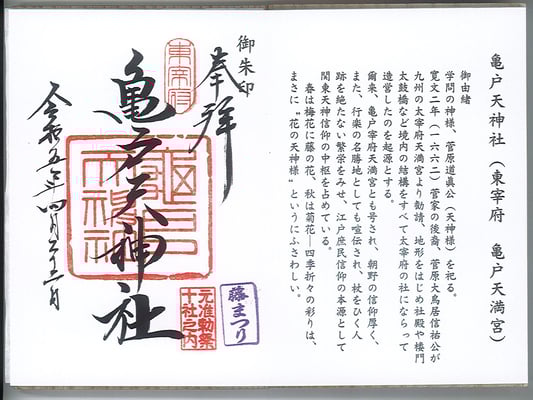 亀戸天神社（東宰府　亀戸天満宮）
御由緒
学問の神様、菅原道真公（天神様）を祀る。
寛文二年（一六六二）菅家の後裔、菅原大鳥居信祐公が
九州の太宰府天満宮より勧請、地形をはじめ社殿や楼門
太鼓橋など境内の結構をすべて太宰府の社にならって
造営したのを起源とする。
爾来、亀戸宰府天満宮とも号され、朝野の信仰厚く、
また、行楽の名勝地としても喧伝され、杖をひく人
跡を絶たない繁栄をみせ、江戸庶民信仰の本源として
関東天神信仰の中枢を占めている。
春は梅花に藤の花、秋は菊花―四季折々の彩りは、
まさに〝花の天神様〟というにふさわしい。
御朱印
奉拝
東宰府
亀戸天神社
令和五年四月二十二日
藤まつり
元准勅祭
十社之内